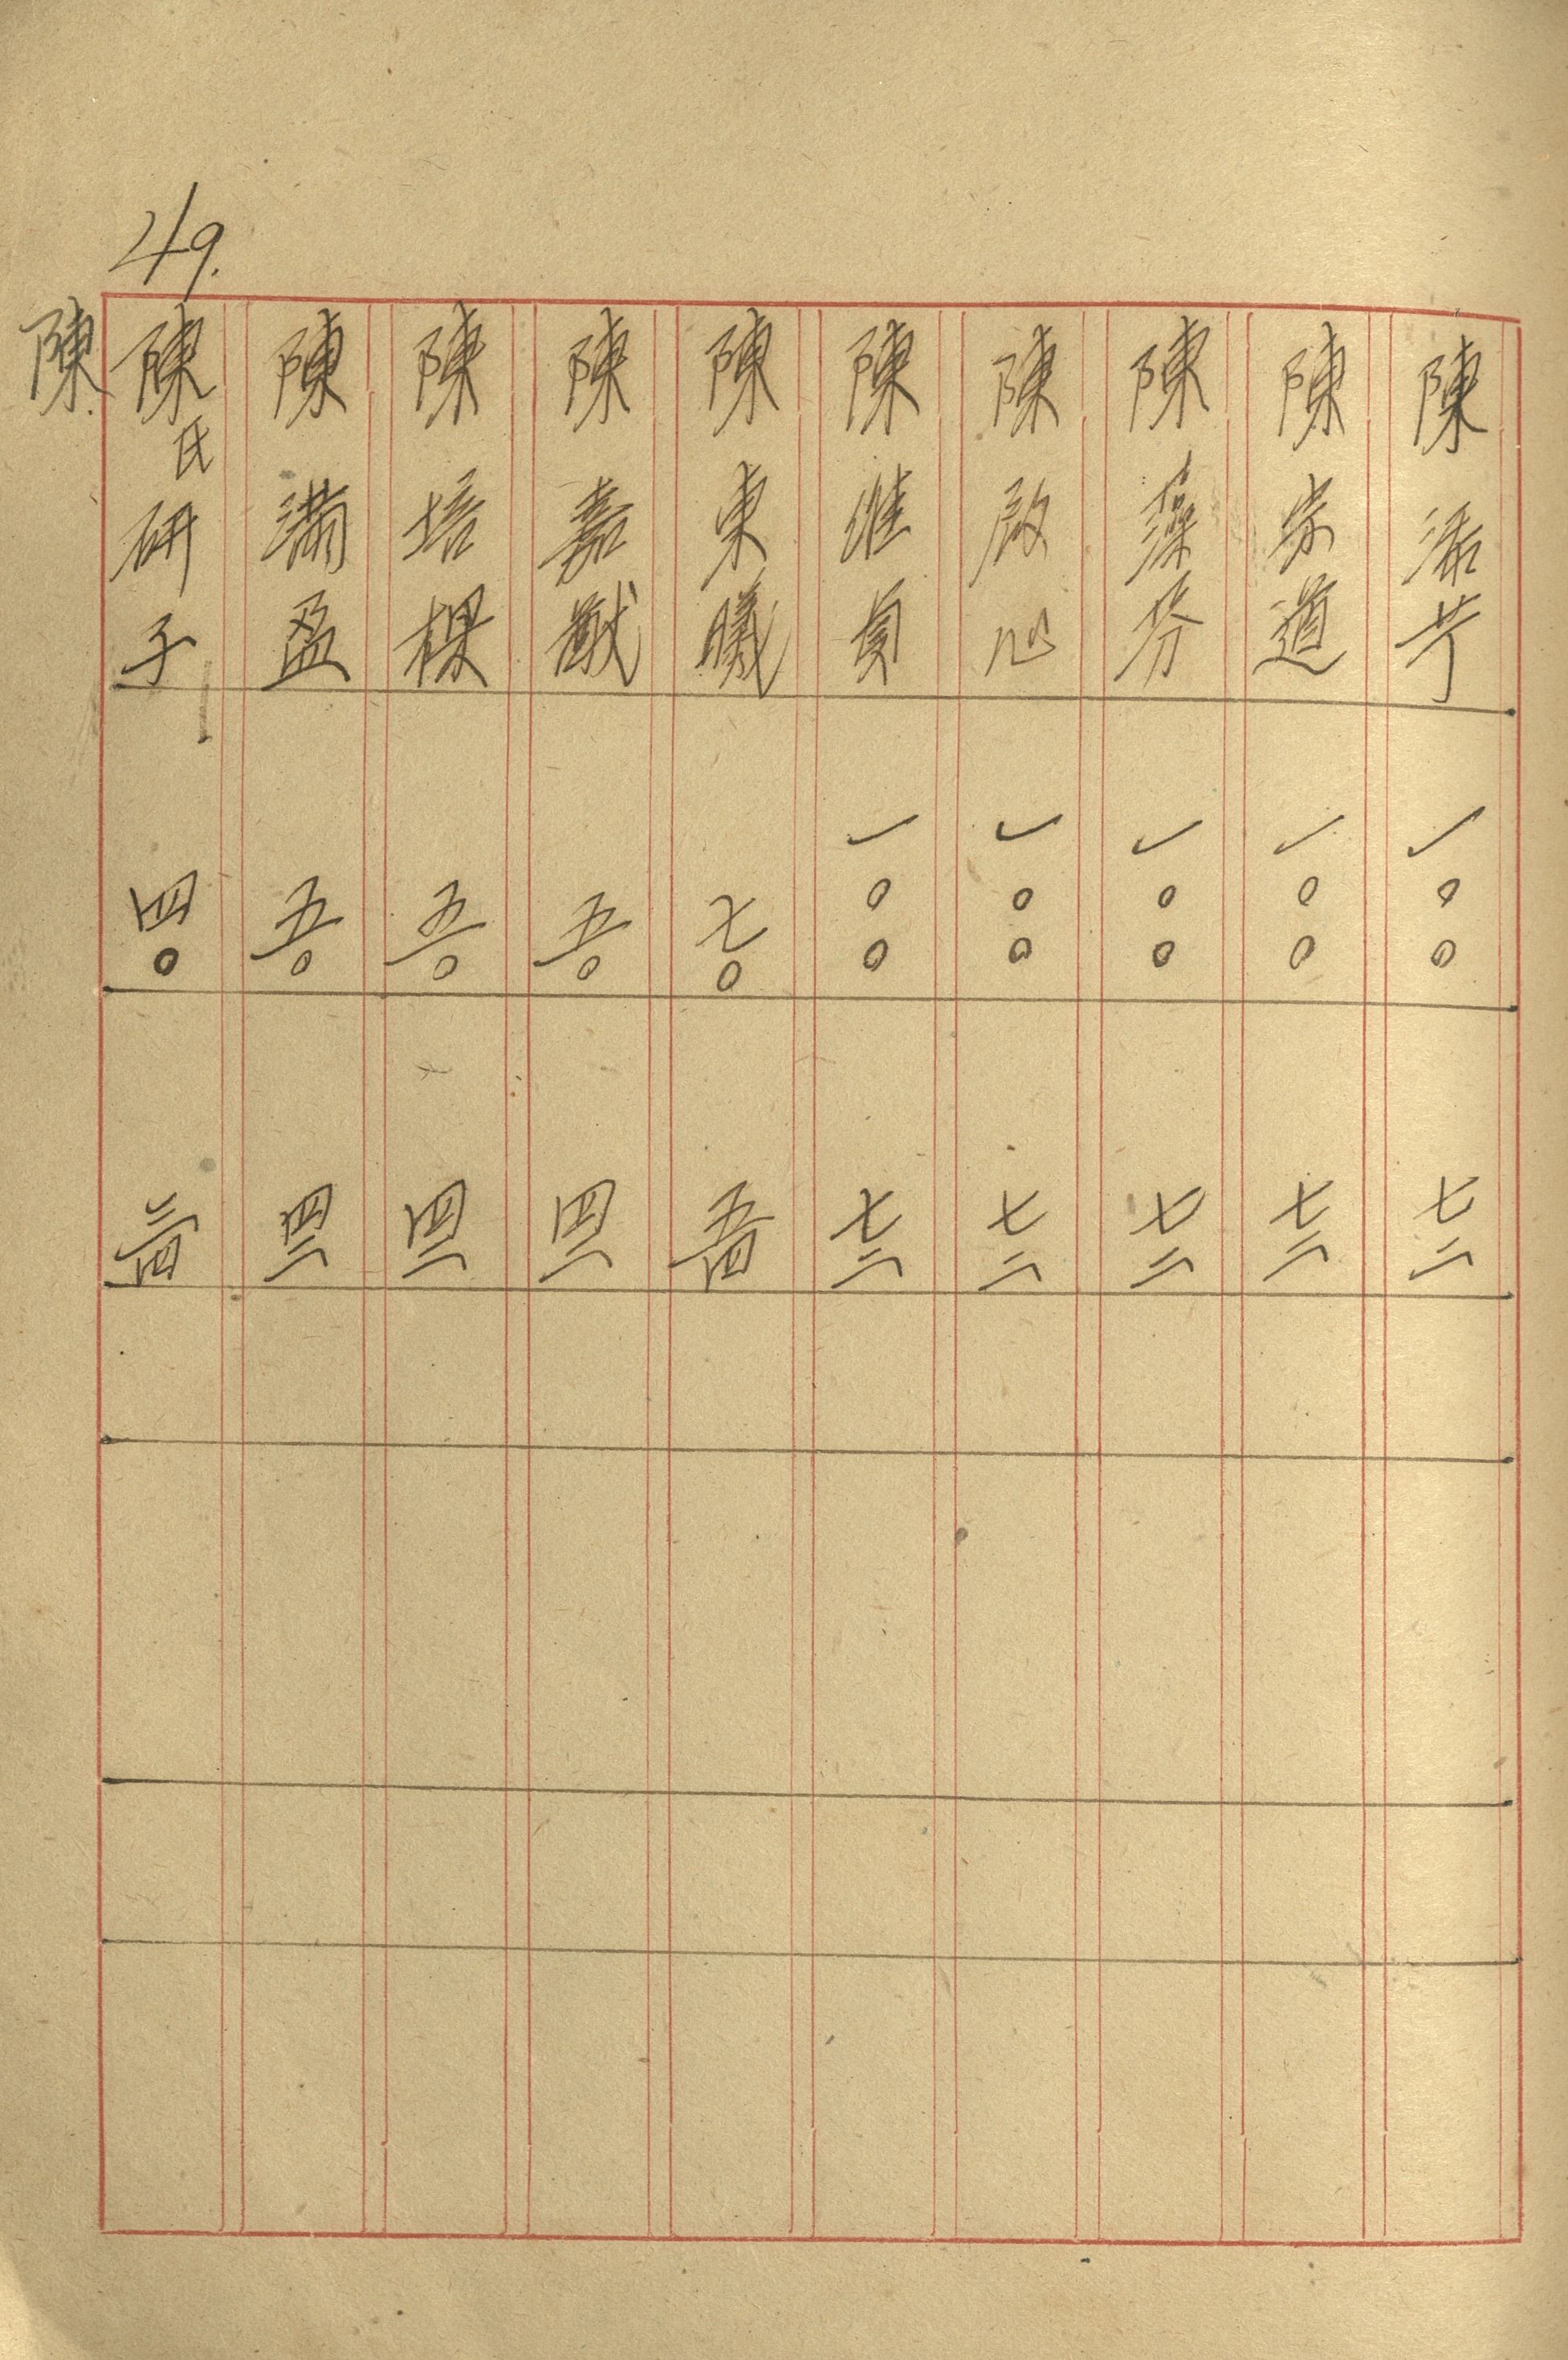 49.
陳添丁 一〇〇 七二
陳宗道 一〇〇 七二
陳藻芬 一〇〇 七二
陳啟心 一〇〇 七二
陳維貞 一〇〇 七二
陳東曦 七〇 五四
陳嘉猷 五〇 四二
陳培棵 五〇 四二
陳滿盈 五〇 四二
陳氏研子 四〇 三四
陳